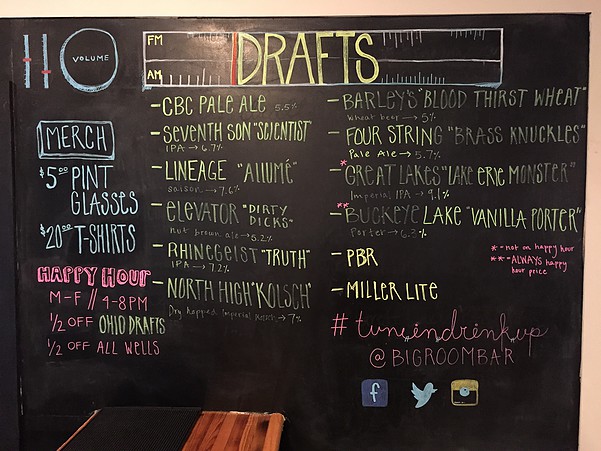 VOLUME
FM
AM
DRAFTS
MERCH
$5.00 PINT
GLASSES
$20.00 T-SHIRTS
HAPPY HOUR
M-F // 4-8PM
1/2 OFF OHIO DRAFTS
1/2 OFF ALL WELLS
- CBC PALE ALE 5.5%
- SEVENTH SON "SCIENTIST"
IPA → 6.7%
- LINEAGE "ALLUMÉ"
saison → 7.6%
- ELEVATOR "DIRTY
DICKS"
nut brown ale → 5.2%
- RHINEGEIST "TRUTH"
IPA → 7.2%
- NORTH HIGH "KOLSCH"
Dry hopped Imperial Kolsch → 7%
- BARLEY'S "BLOOD THIRST WHEAT"
Wheat beer → 5%
- FOUR STRING "BRASS KNUCKLES"
Pale Ale → 5.7%
* - GREAT LAKES "LAKE ERIE MONSTER"
Imperial IPA → 9.1%
** - BUCKEYE LAKE "VANILLA PORTER"
Porter → 6.3%
- PBR
- MILLER LITE
* - not on happy hour
** - ALWAYS happy
hour price
#tuneindrinkup
@BIGROOMBAR
f